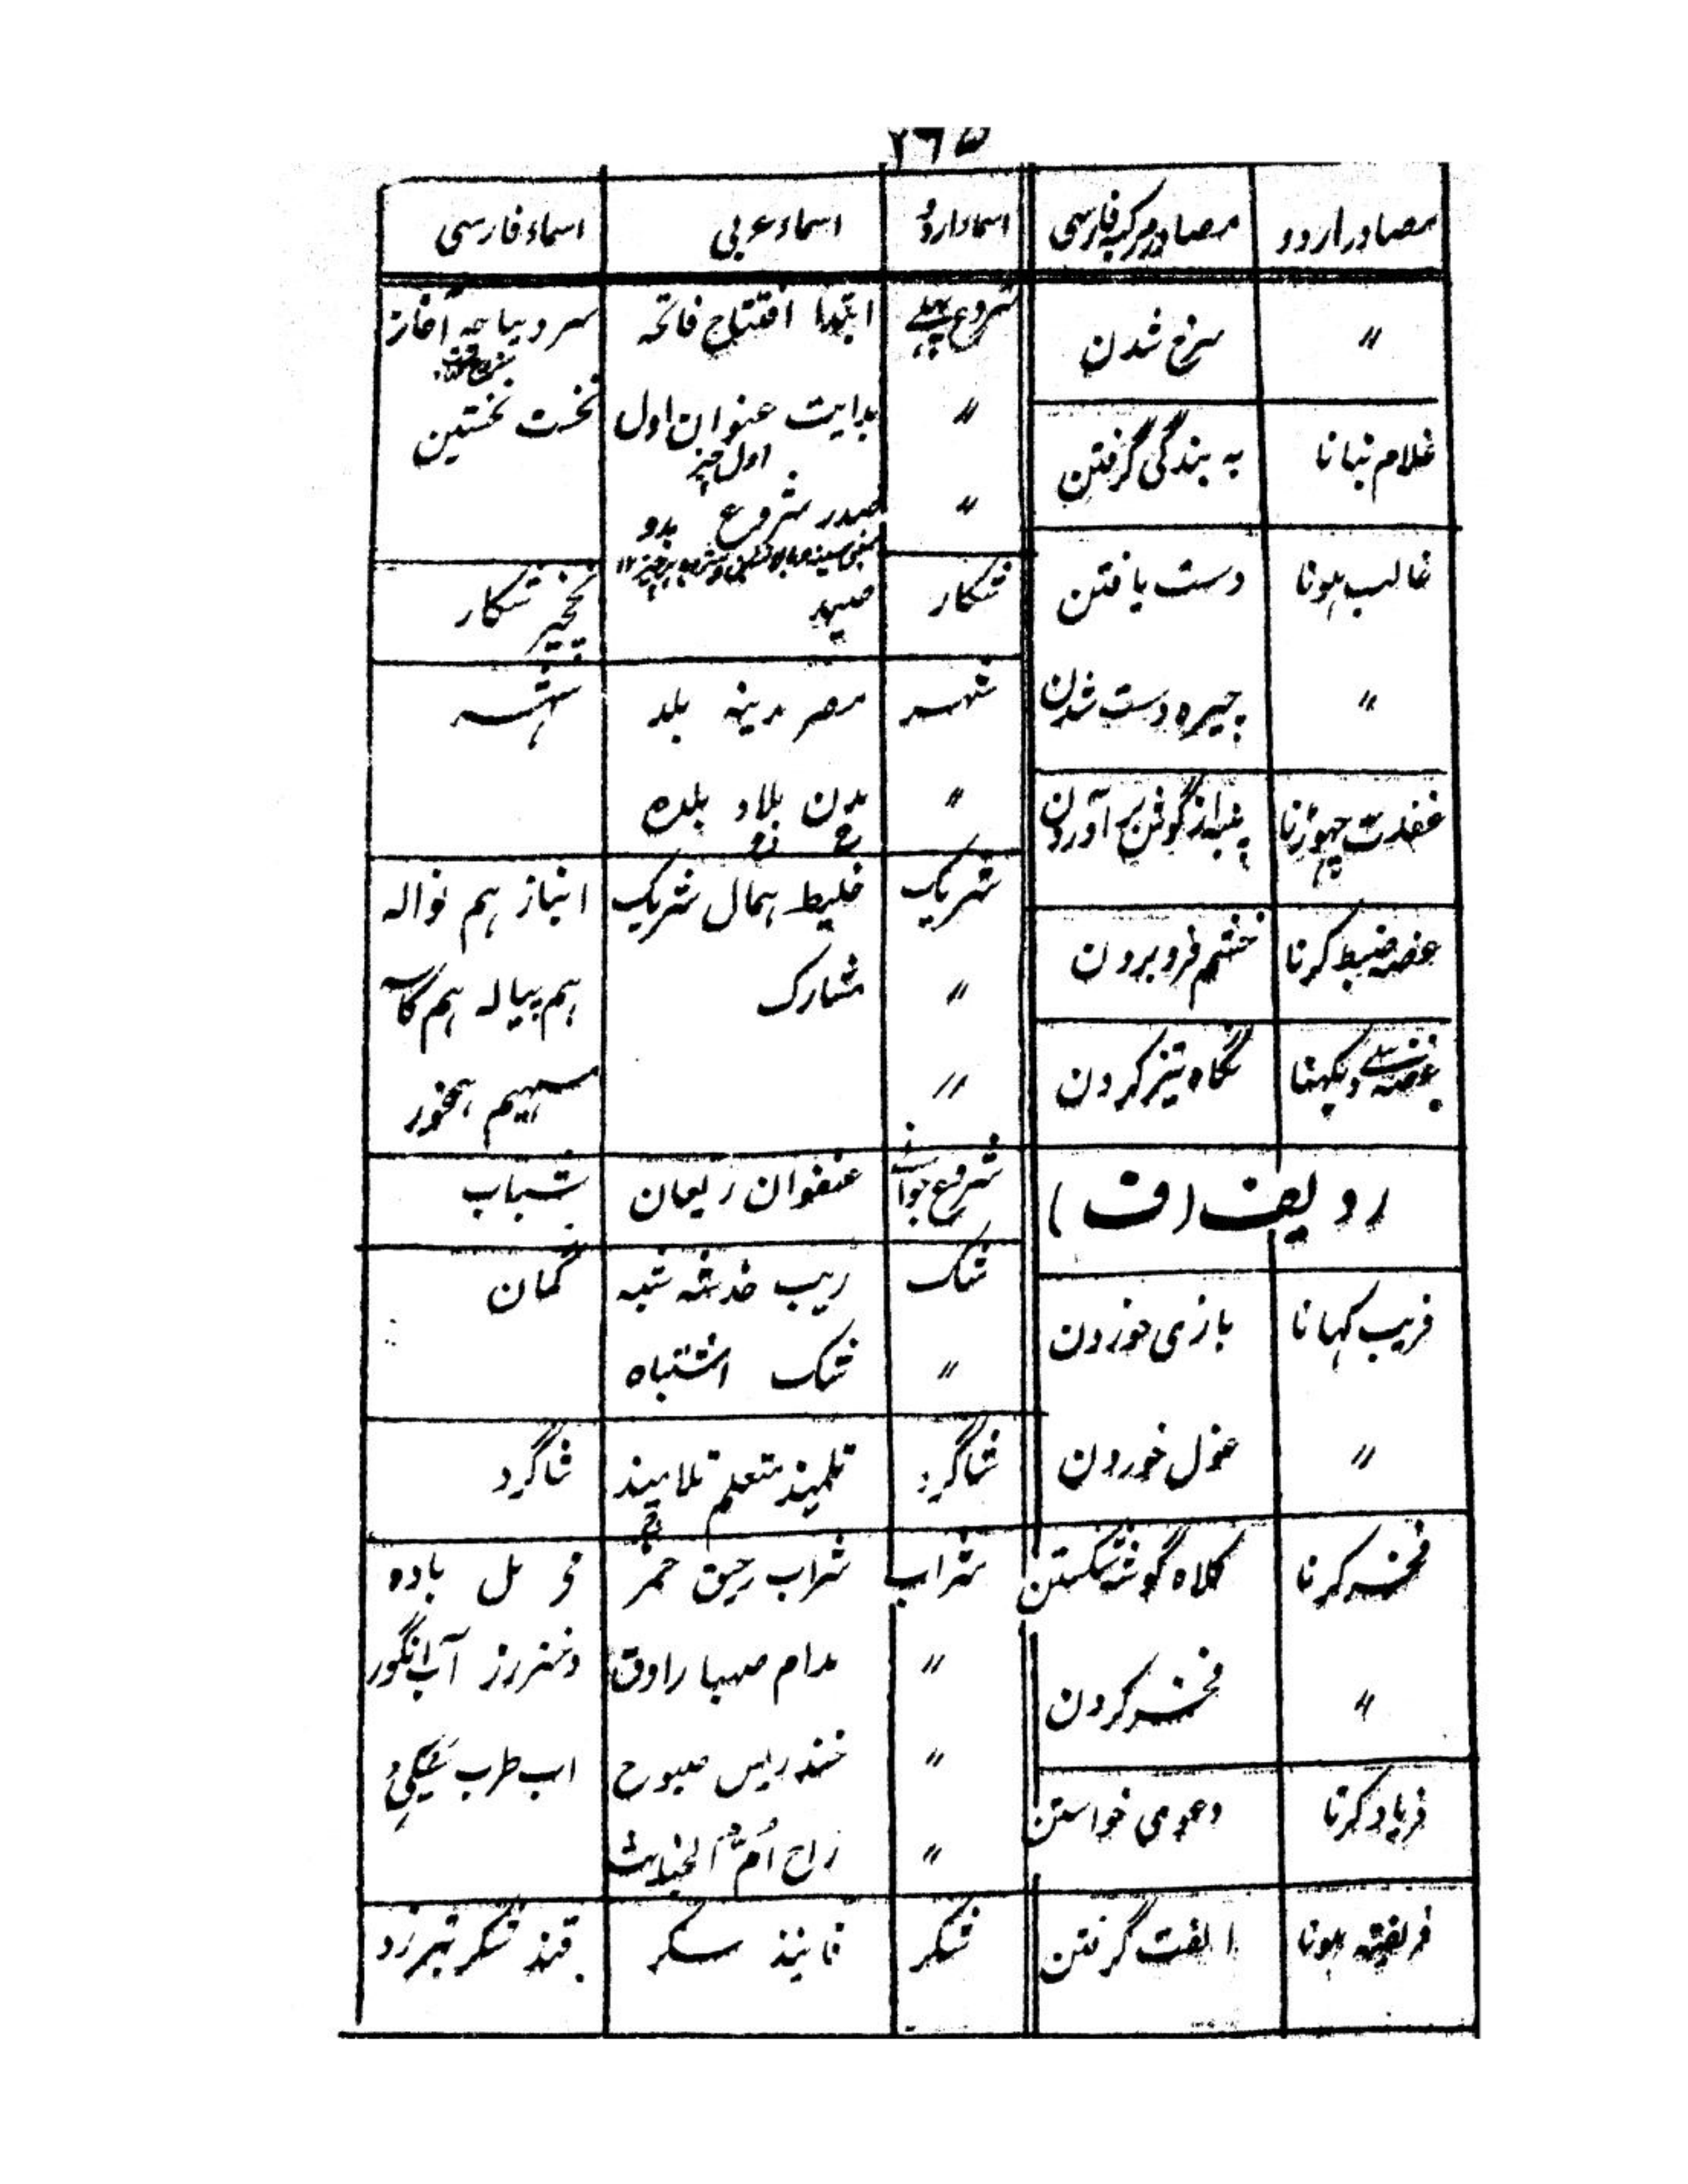 ۲٦۵
مصادر اردو مصادر مرکبہ فارسی اسماء اردو اسماء عربی اسماء فارسی
〃 سرخ شدن
غلام بنانا به بندگی گرفتن
غالب ہونا دست یافتن
〃 چیره دست شدن
غفلت چھوڑنا پنبه از گوش بر آوردن
غصہ ضبط کرنا خشم فرو بردن
غصہ سے دیکھنا نگاه تیز کردن
ردیف (ف)
فریب کہانا بازی خوردن
〃 غول خوردن
فخر کرنا کلاه گوشه شکستن
〃 فخر کردن
فریاد کرنا دعوی خواستن
فریفتہ ہونا الفت گرفتن
شروع پہلے ابتدا افتتاح فاتحہ سر دیباچہ آغاز
〃 بدایت عنوان اول نخست نخستین
اول چیز
〃 صدر شروع بدو
شکار صید نخچیر شکار
شہر مصر مدینہ بلد شہر
〃 مدن بلاد بلدہ
ج ج
شریک خلیط ہمال شریک انباز ہم نوالہ
〃 مشارک ہم پیالہ ہم کاسہ
〃 سہیم ہمخور
شروع جوانی عنفوان ریعان شباب
شک ریب خدشہ شبہ گمان
〃 شک اشتباہ
شاگرد تلمیذ متعلم تلامیذ شاگرد
ج
شراب شراب رحیق خمر می مل بادہ
〃 مدام صہبا راوق دختر رز آب انگور
〃 خندریس صبوح اب طرب
〃 راح اُم الخبایث
شکر فانیذ سکر قند شکر تبرزد